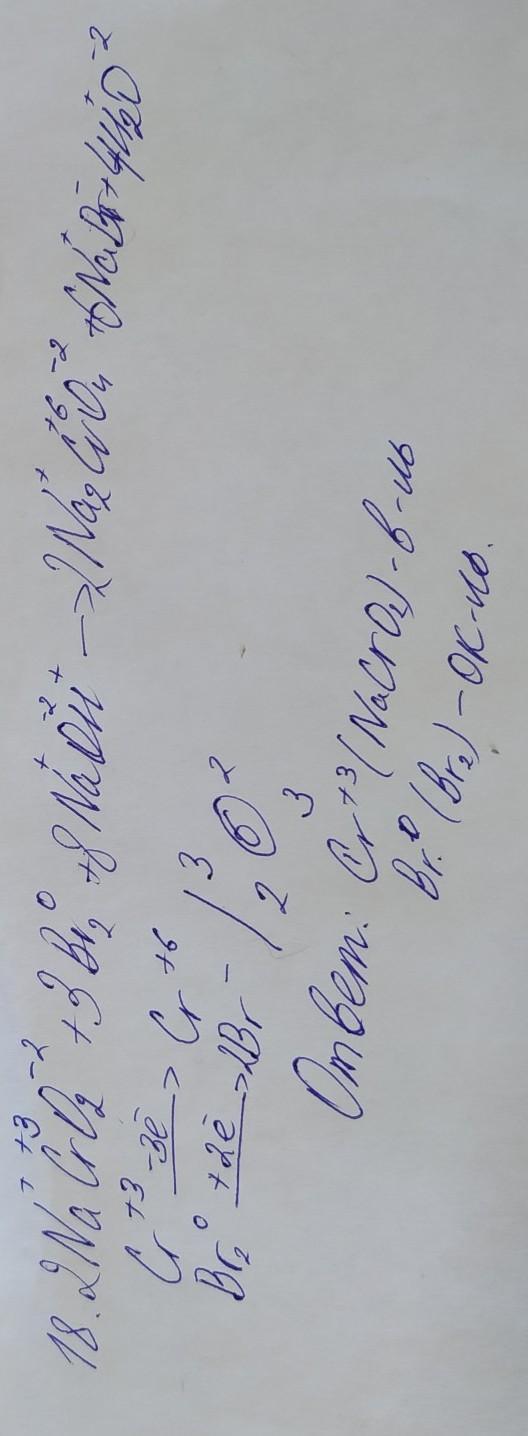 18. 2Na⁺Cr⁺³O₂⁻² + 3Br₂⁰ + 8Na⁺O⁻²H⁺ → 2Na₂⁺Cr⁺⁶O₄⁻² + 6Na⁺Br⁻ + 4H₂⁺O⁻²
Cr⁺³ -3ē > Cr⁺⁶ | 3 | 6 | 2
Br₂⁰ +2ē > 2Br⁻ | 2 | 3
Ответ: Cr⁺³(NaCrO₂) - в-ль
Br⁰(Br₂) - ок-ль.